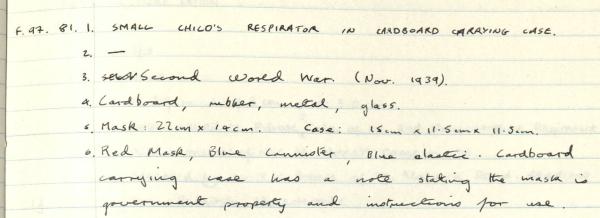 F.97. 81. 1. SMALL CHILD'S RESPIRATOR IN CARDBOARD CARRYING CASE.
2. —
3. Second World War. (Nov. 1939).
4. Cardboard, rubber, metal, glass.
5. Mask: 22cm x 14cm. Case: 15cm x 11.5cm x 11.5cm.
6. Red Mask, Blue Cannister, Blue elastic. Cardboard
carrying case has a note stating the mask is
government property and instructions for use.